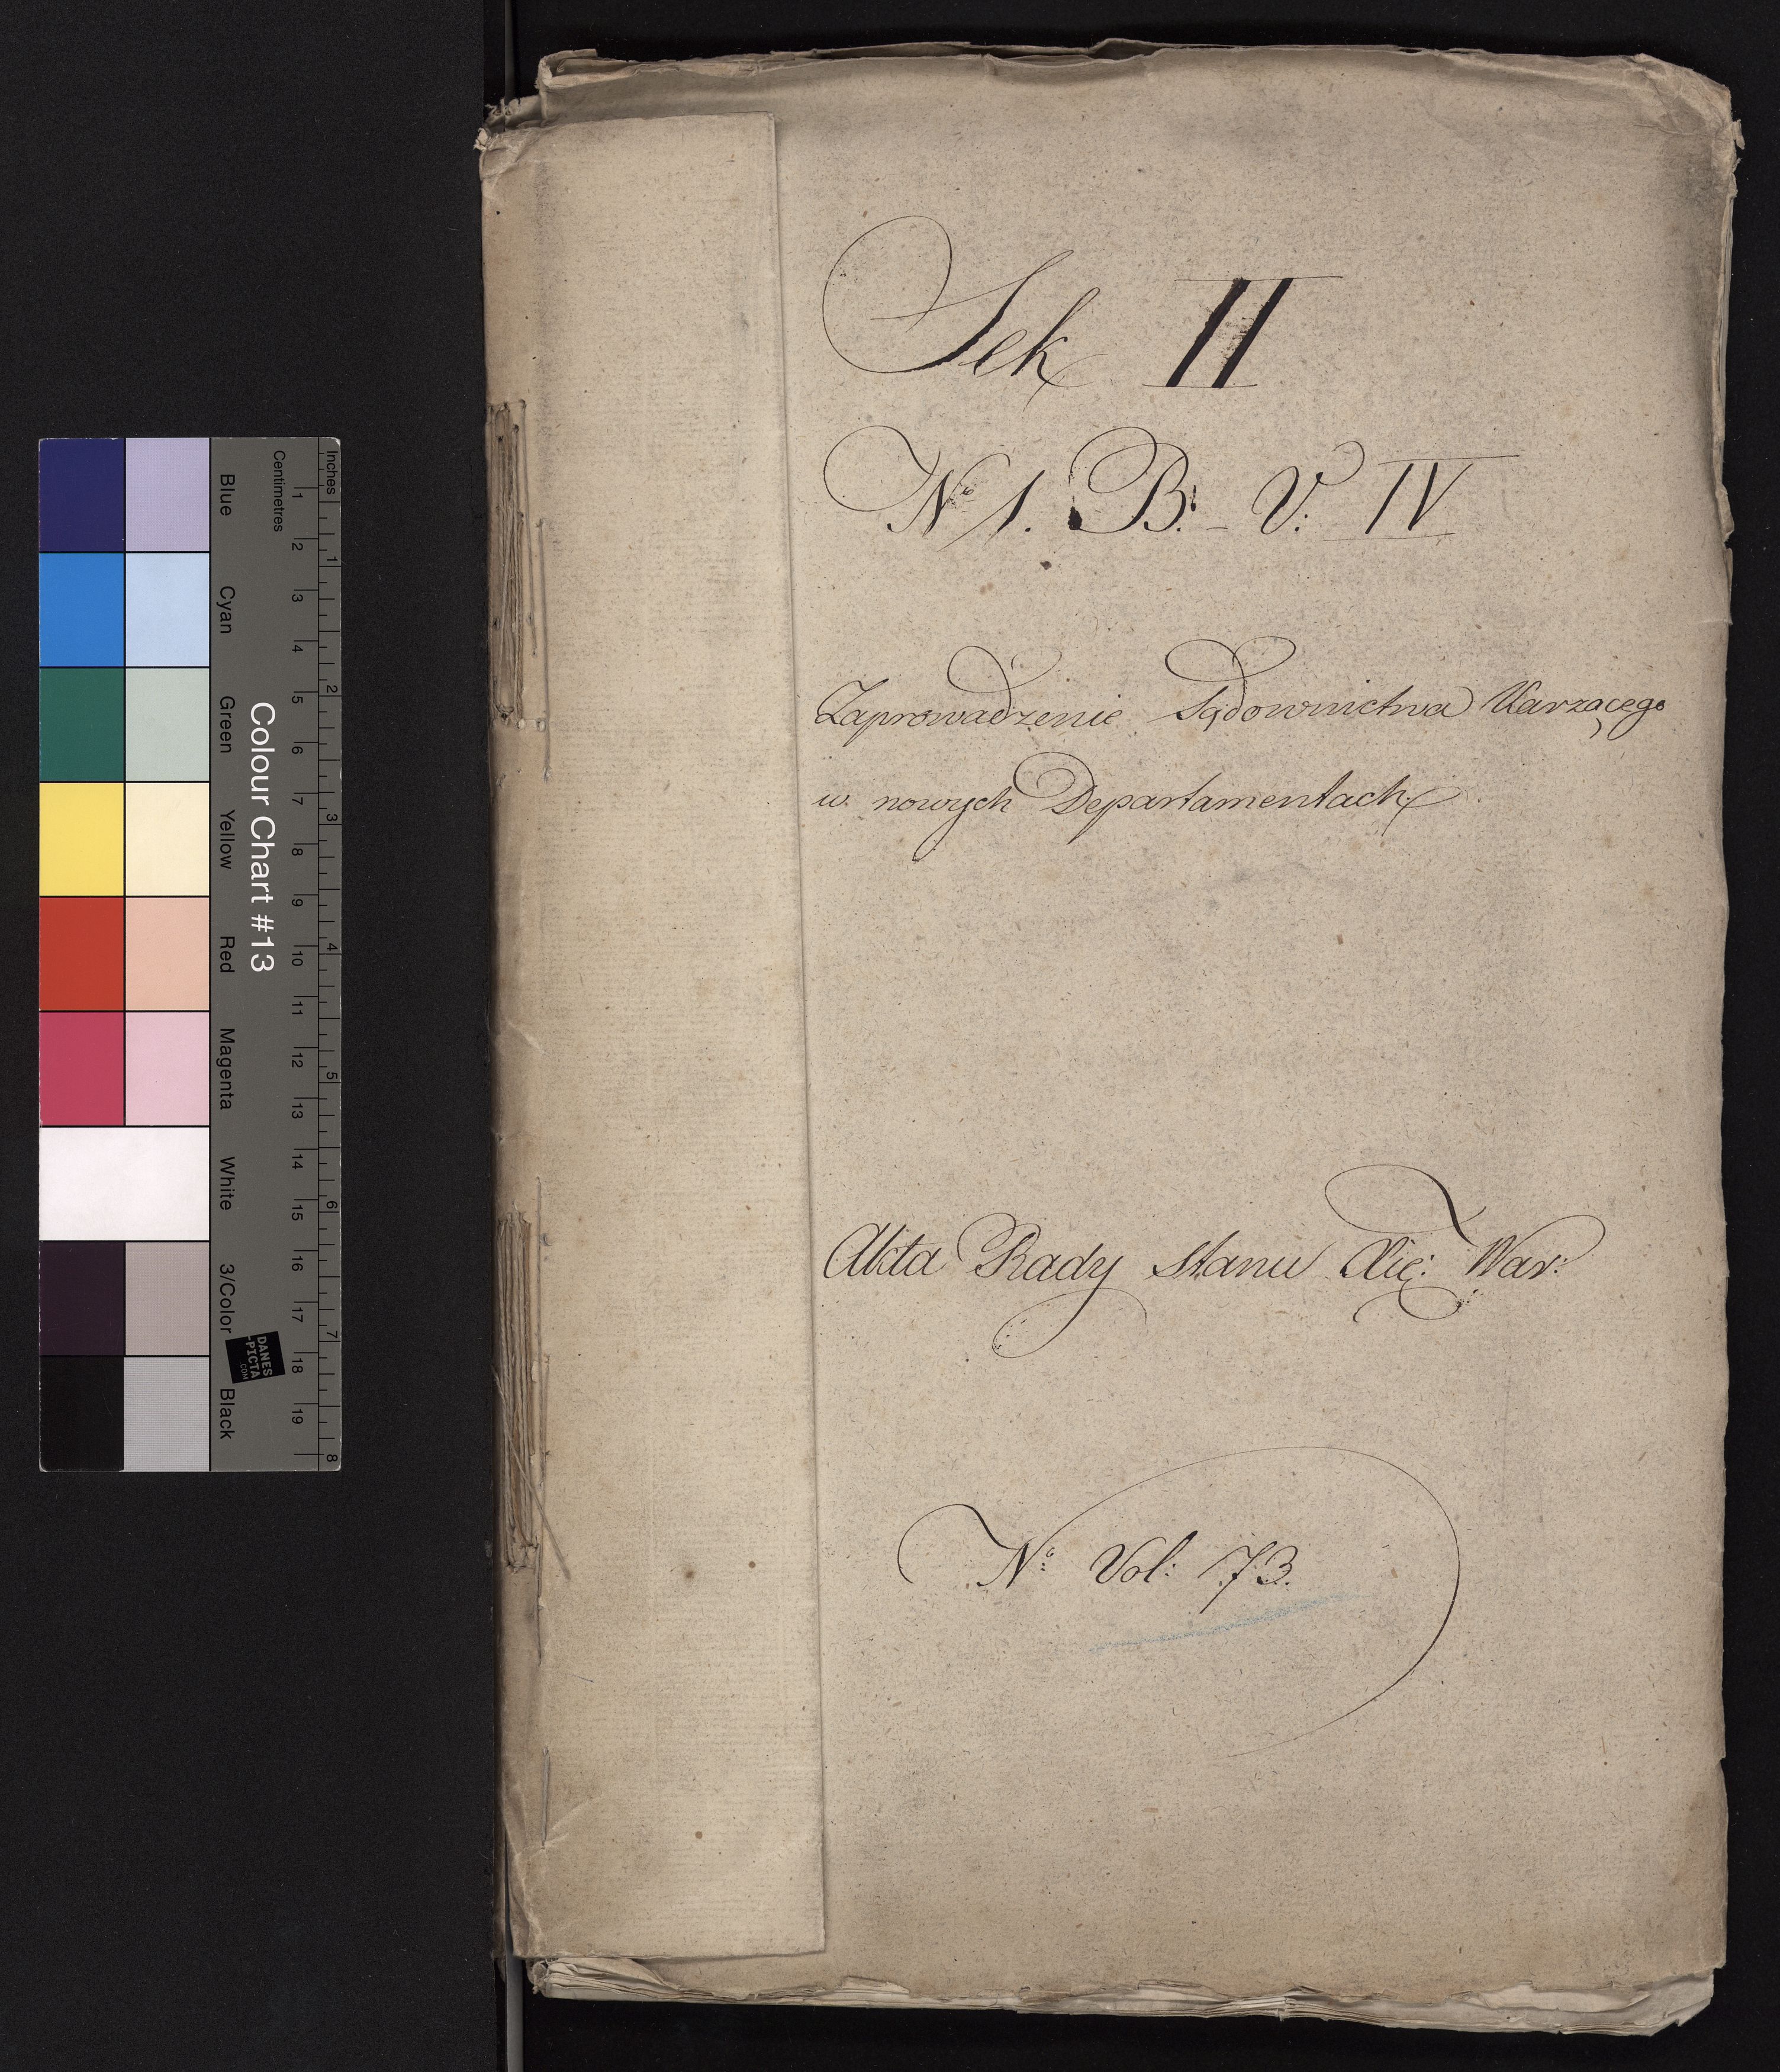 Sek II
No 1. B. - V. IV
Zaprowadzenie Sądownictwa Karzącego
w nowych Departamentach
Akta Rady Stanu Xię: War:
No: Vol: 73.
Inches
Centimetres
1 2 3 4 5 6 7 8 9 10 11 12 13 14 15 16 17 18 19
1 2 3 4 5 6 7 8
Colour Chart #13
Blue Cyan Green Yellow Red Magenta White 3/Color Black
DANES
-PICTA
.COM